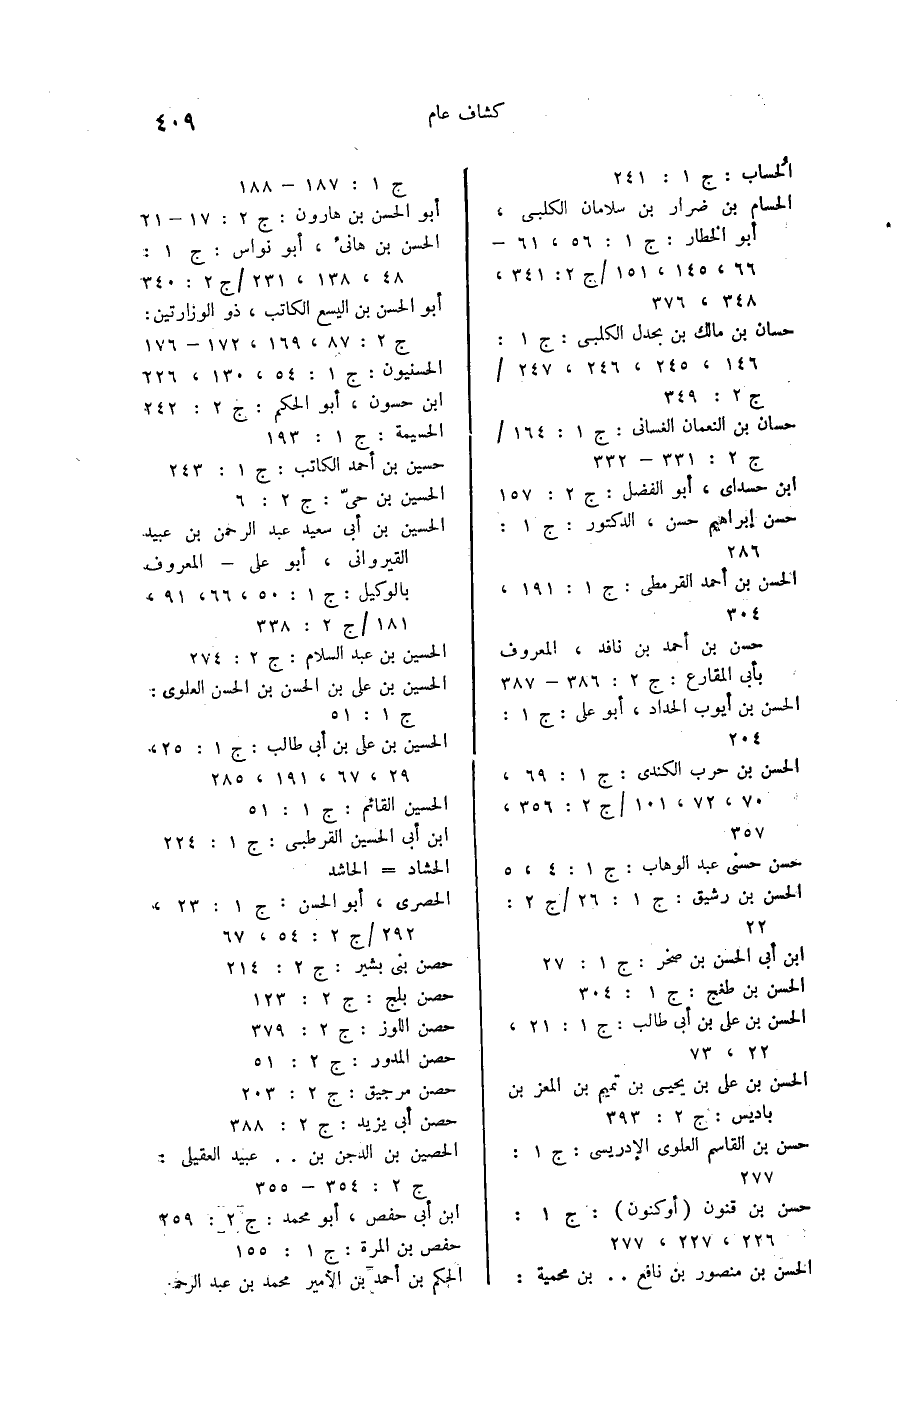 ٤٠٩
كشاف عام
الحساب : ج ١ : ٢٤١
الحسام بن ضرار بن سلامان الكلبى ،
أبو الخطار : ج ١ : ٥٦ ، ٦١ –
٦٦ ، ١٤٥ ، ١٥١ / ج ٢ : ٣٤١ ،
٣٤٨ ، ٣٧٦
حسان بن مالك بن بحدل الكلبى : ج ١ :
١٤٦ ، ٢٤٥ ، ٢٤٦ ، ٢٤٧ /
ج ٢ : ٣٤٩
حسان بن النعمان الغسانى : ج ١ : ١٦٤ /
ج ٢ : ٣٣١ – ٣٣٢
ابن حسداى ، أبو الفضل : ج ٢ : ١٥٧
حسن إبراهيم حسن ، الدكتور : ج ١ :
٢٨٦
الحسن بن أحمد القرمطى : ج ١ : ١٩١ ،
٣٠٤
حسن بن أحمد بن نافد ، المعروف
بأبى المقارع : ج ٢ : ٣٨٦ – ٣٨٧
الحسن بن أيوب الحداد ، أبو على : ج ١ :
٢٠٤
الحسن بن حرب الكندى : ج ١ : ٦٩ ،
٧٠ ، ٧٢ ، ١٠١ / ج ٢ : ٣٥٦ ،
٣٥٧
حسن حسنى عبد الوهاب : ج ١ : ٤ ، ٥
الحسن بن رشيق : ج ١ : ٢٦ / ج ٢ :
٢٢
ابن أبى الحسن بن صخر : ج ١ : ٢٧
الحسن بن طغج : ج ١ : ٣٠٤
الحسن بن على بن أبى طالب : ج ١ : ٢١ ،
٢٢ ، ٧٣
الحسن بن على بن يحيى بن تميم بن المعز بن
باديس : ج ٢ : ٣٩٣
حسن بن القاسم العلوى الإدريسى : ج ١ :
٢٧٧
حسن بن قنون (أوكنون) : ج ١ :
٢٢٦ ، ٢٢٧ ، ٢٧٧
الحسن بن منصور بن نافع .. بن محمية :
ج ١ : ١٨٧ – ١٨٨
أبو الحسن بن هارون : ج ٢ : ١٧ – ٢١
الحسن بن هانئ ، أبو نواس : ج ١ :
٤٨ ، ١٣٨ ، ٢٣١ / ج ٢ : ٣٤٠
أبو الحسن بن اليسع الكاتب ، ذو الوزارتين :
ج ٢ : ٨٧ ، ١٦٩ ، ١٧٢ – ١٧٦
الحسنيون : ج ١ : ٥٤ ، ١٣٠ ، ٢٢٦
ابن حسون ، أبو الحكم : ج ٢ : ٢٤٢
الحسيمة : ج ١ : ١٩٣
حسين بن أحمد الكاتب : ج ١ : ٢٤٣
الحسين بن حىّ : ج ٢ : ٦
الحسين بن أبى سعيد عبد الرحمن بن عبيد
القيروانى ، أبو على – المعروف
بالوكيل : ج ١ : ٥٠ ، ٦٦ ، ٩١ ،
١٨١ / ج ٢ : ٣٣٨
الحسين بن عبد السلام : ج ٢ : ٢٧٤
الحسين بن على بن الحسن بن الحسن العلوى :
ج ١ : ٥١
الحسين بن على بن أبى طالب : ج ١ : ٢٥ ،
٢٩ ، ٦٧ ، ١٩١ ، ٢٨٥
الحسين القائم : ج ١ : ٥١
ابن أبى الحسين القرطبى : ج ١ : ٢٢٤
الحشاد = الحاشد
الحصرى ، أبو الحسن : ج ١ : ٢٣ ،
٢٩٢ / ج ٢ : ٥٤ ، ٦٧
حصن بنى بشير : ج ٢ : ٢١٤
حصن بلج : ج ٢ : ١٢٣
حصن اللوز : ج ٢ : ٣٧٩
حصن المدور : ج ٢ : ٥١
حصن مرجيق : ج ٢ : ٢٠٣
حصن أبى يزيد : ج ٢ : ٣٨٨
الحصين بن الدجن بن .. عبيد العقيلى :
ج ٢ : ٣٥٤ – ٣٥٥
ابن أبى حفص ، أبو محمد : ج ٢ : ٢٥٩
حفص بن المرة : ج ١ : ١٥٥
الحكم بن أحمد بن الأمير محمد بن عبد الرحمن